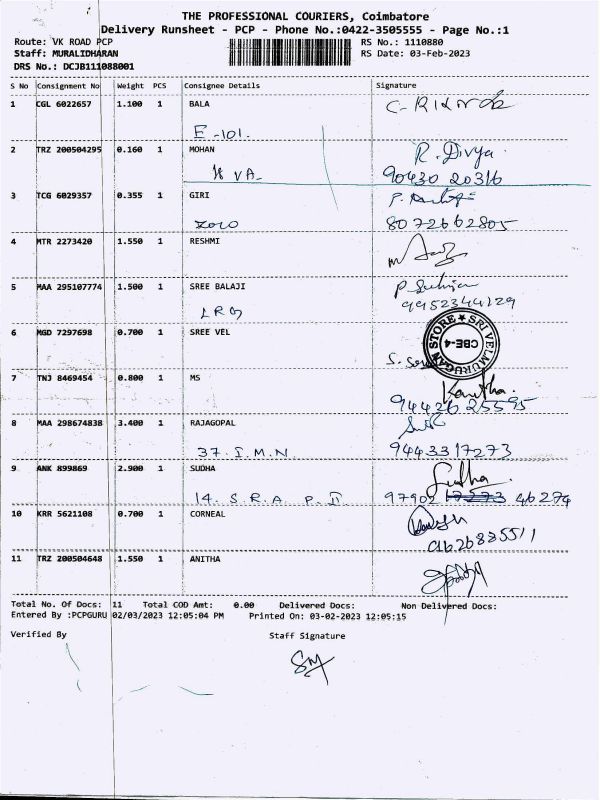 THE PROFESSIONAL COURIERS, Coimbatore
Delivery Runsheet - PCP - Phone No.:0422-3505555 - Page No.:1
Route: VK ROAD PCP RS No.: 1110880
Staff: MURALIDHARAN RS Date: 03-Feb-2023
DRS No.: DCJB111088001
S No Consignment No Weight PCS Consignee Details Signature
1 CGL 6022657 1.100 1 BALA
E-101.
2 TRZ 200504295 0.160 1 MOHAN R. Divya
VA 90430 20316
3 TCG 6029357 0.355 1 GIRI
zoro 8072662805
4 MTR 2273420 1.550 1 RESHMI
5 MAA 295107774 1.500 1 SREE BALAJI
LRG 9952344229
6 MGD 7297698 0.700 1 SREE VEL
SRI VELMURUGAN STORE
CBE-4
7 TNJ 8469454 0.800 1 MS Kavitha.
94426 25595
8 MAA 298674838 3.400 1 RAJAGOPAL
37. I.M.N. 9443317273
9 ANK 899869 2.900 1 SUDHA Sudha
14. S.R.A P.D 97902 17273 46274
10 KRR 5621108 0.700 1 CORNEAL
11 TRZ 200504648 1.550 1 ANITHA
Total No. Of Docs: 11 Total COD Amt: 0.00 Delivered Docs: Non Delivered Docs:
Entered By :PCPGURU 02/03/2023 12:05:04 PM Printed On: 03-02-2023 12:05:15
Verified By Staff Signature